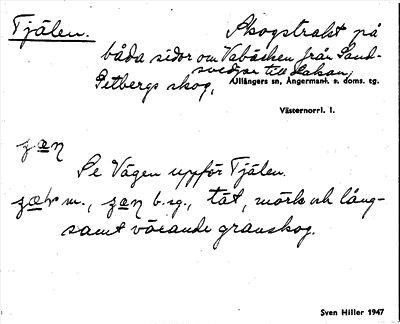 Tjälen.
Skogstrakt på
båda sidor om Vabäcken från Sand-
svedjor till Hakan,
Petbergs skog, Ullångers sn, Ångermanl. s. doms. tg.
Västernorrl. l.
Se Vägen uppför Tjälen.
m., b. sg., tät, mörk och lång-
samt växande granskog.
Sven Hiller 1947